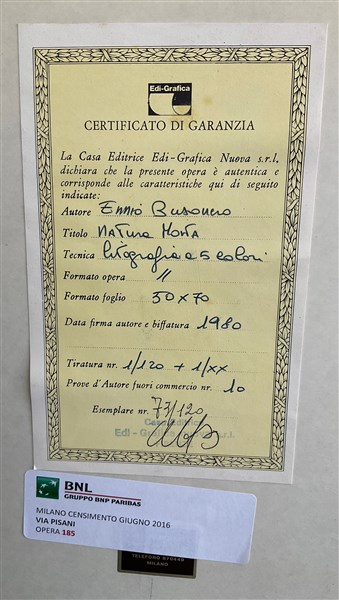 Edi-Grafica
CERTIFICATO DI GARANZIA
La Casa Editrice Edi-Grafica Nuova s.r.l.
dichiara che la presente opera è autentica e
corrisponde alle caratteristiche qui di seguito
indicate:
Autore Ennio
Titolo Natura Morta
Tecnica litografia a 5 colori
Formato opera "
Formato foglio 50x70
Data firma autore e biffatura 1980
Tiratura nr. 1/120 + 1/XX
Prove d'Autore fuori commercio nr. 10
Esemplare nr. 73/120
Casa Editrice
Edi - Grafica s.r.l.
BNL
GRUPPO BNP PARIBAS
MILANO CENSIMENTO GIUGNO 2016
VIA PISANI
OPERA 185
MILANO